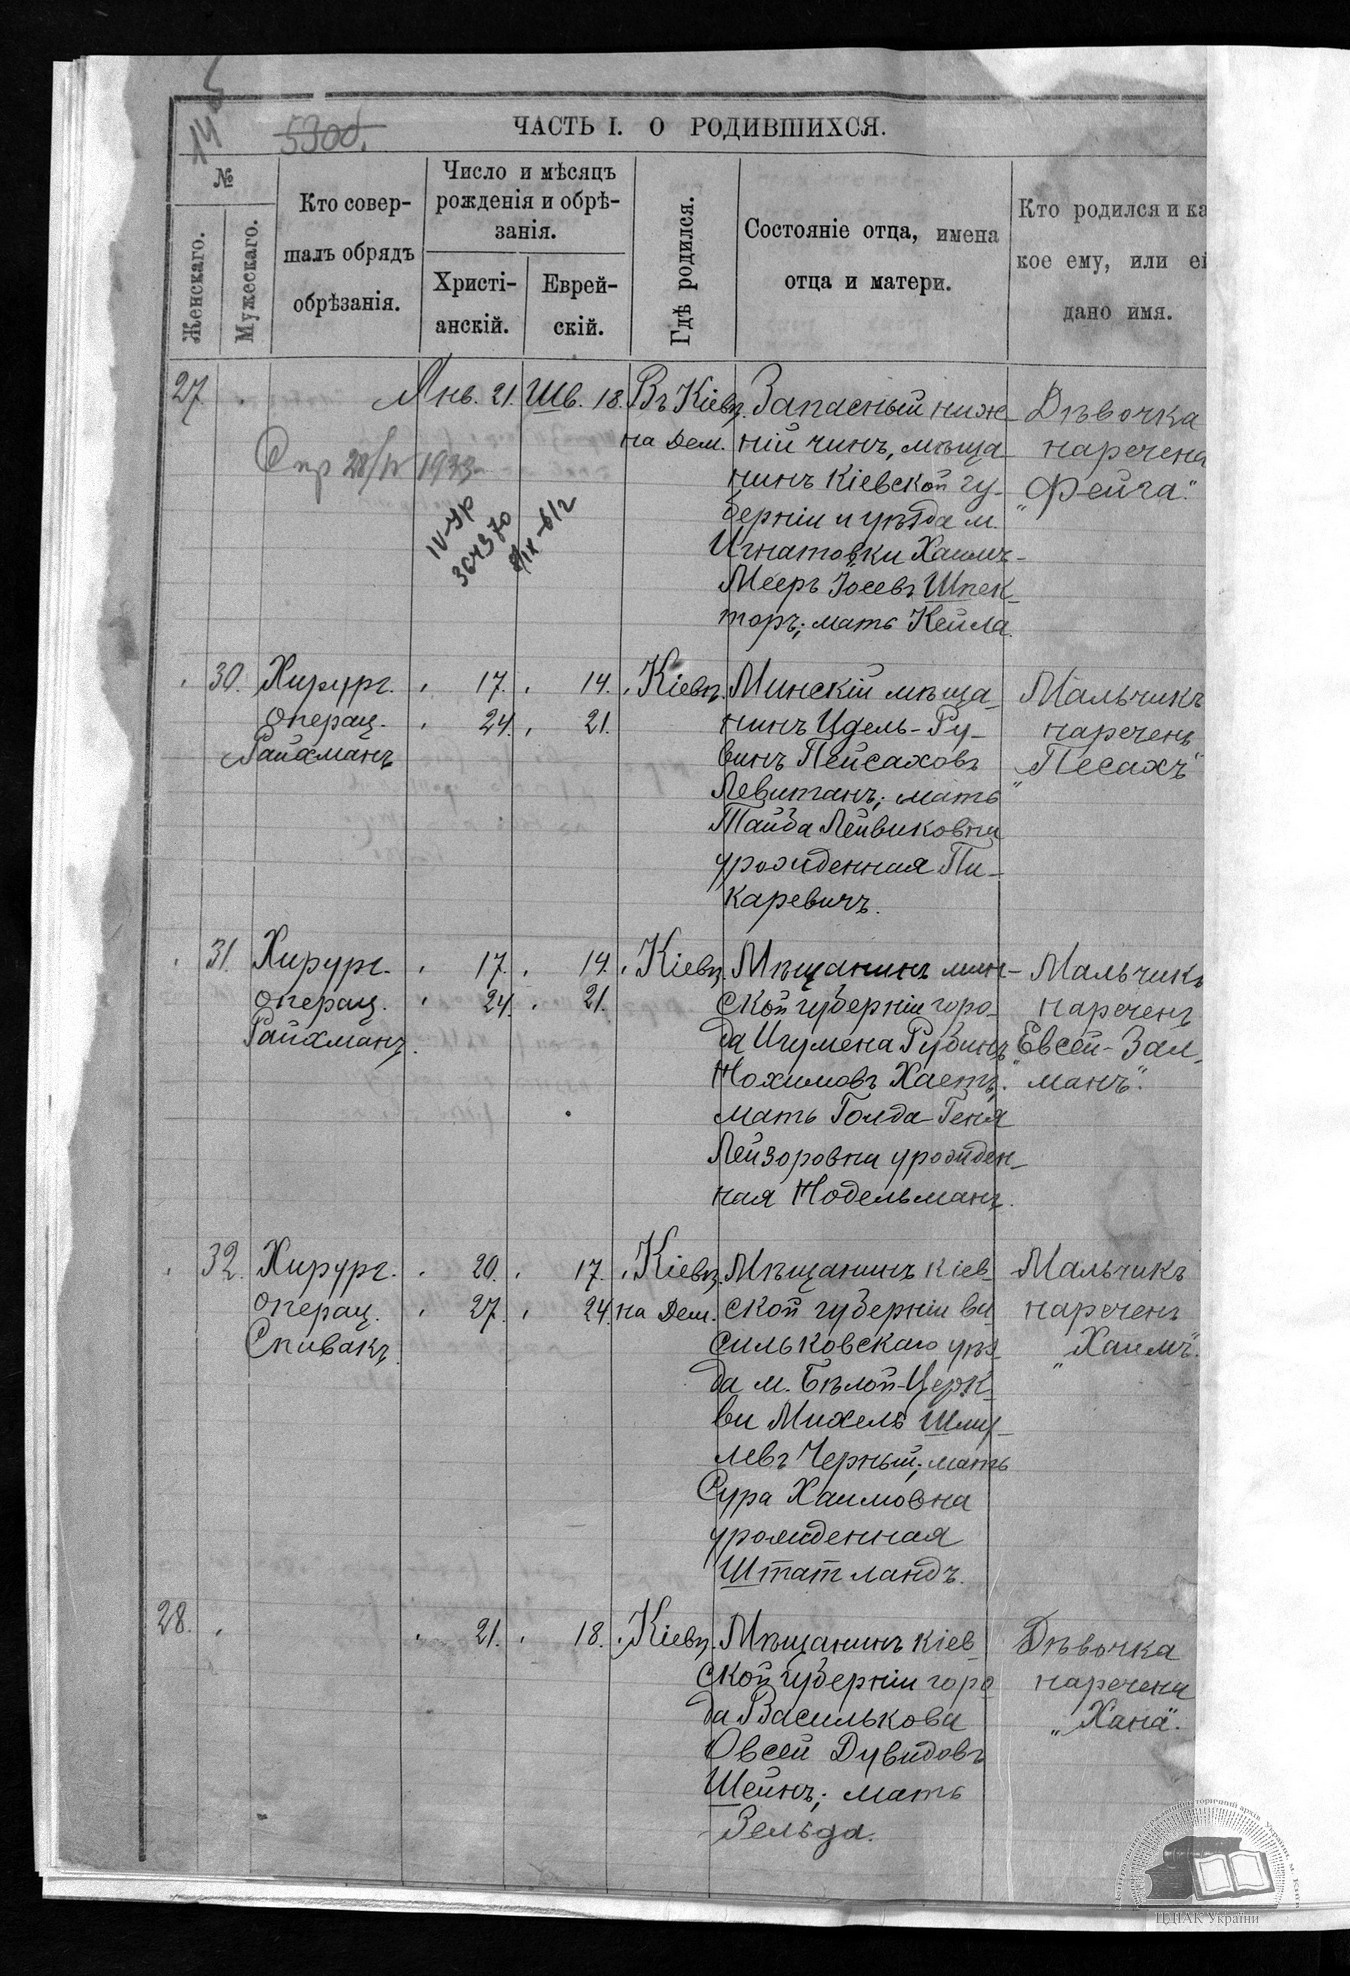 14
5300.
ЧАСТЬ I. О РОДИВШИХСЯ.
№
Женскаго.
Мужескаго.
Кто совер-
шалъ обрядъ
обрѣзанія.
Число и мѣсяцъ
рожденія и обрѣ-
занія.
Христі-
анскій.
Еврей-
скій.
Гдѣ родился.
Состояніе отца, имена
отца и матери.
Кто родился и ка
кое ему, или ей
дано имя.
27.
Янв. 21.
Шв. 18.
Въ Кіевѣ
на Дем.
Запасный ниж-
ній чинъ, мѣща-
нинъ Кіевской гу-
берніи и уѣзда м.
Игнатовки Хаимъ-
Мееръ Іосевъ Шпек-
торъ; мать Кейла.
Дѣвочка
наречена
„Фейга".
Спр 28/IV 1933
IV-УР
364370
30.
Хирург.
операц.
Райхманъ
17.
24.
14.
21.
Кіевѣ.
Минскій мѣща-
нинъ Идель-Ру-
винъ Пейсаховъ
Левитанъ; мать
Тайба Лейвиковна
урожденная Пи-
каревичъ.
Мальчикъ
нареченъ
„Песахъ"
31.
Хирург.
операц.
Райхманъ.
17.
24.
14.
21.
Кіевѣ.
Мѣщанинъ мин-
ской губерніи горо-
да Игумена Рубинъ
Нохимовъ Хаетъ;
мать Голда-Геня
Лейзоровна урожден-
ная Нодельманъ.
Мальчикъ
нареченъ
„Евсей-Зал-
манъ".
32.
Хирург.
операц.
Спивакъ.
20.
27.
17.
24.
Кіевѣ.
на Дем.
Мѣщанинъ кіев-
ской губерніи ва
сильковскаго уѣз-
да м. Бѣлой-Церк-
ви Михель Шму-
левъ Черный; мать
Сура Хаимовна
урожденная
Штатландъ.
Мальчикъ
нареченъ
„Хаимъ".
28.
21.
18.
Кіевѣ.
Мѣщанинъ кіев-
ской губерніи горо
да Василькова
Овсей Дувидовъ
Шейнъ; мать
Зельда.
Дѣвочка
наречена
„Хана".
ЦДІАК України